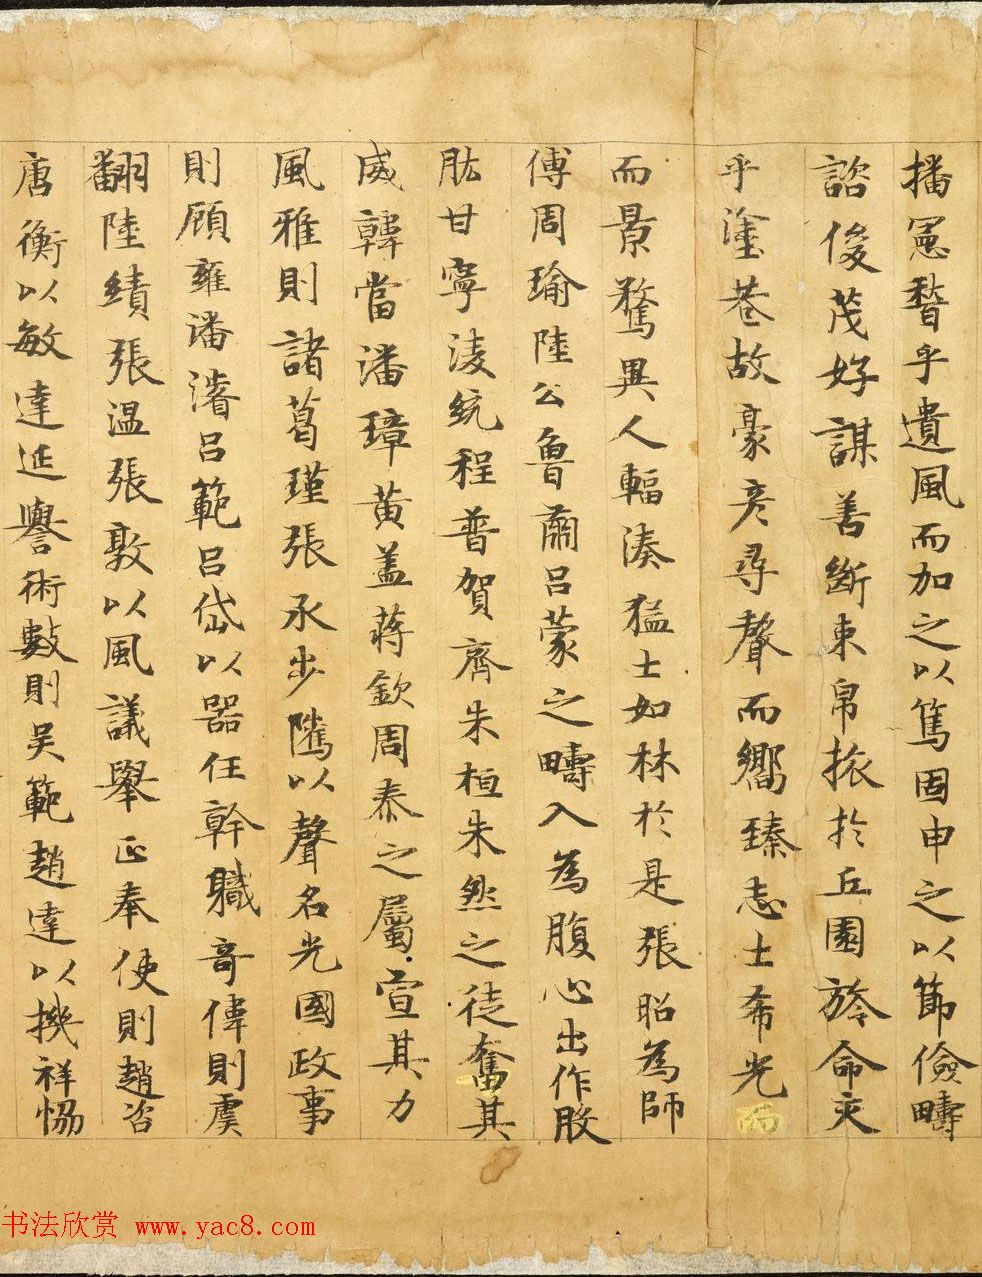 播憲稽乎遺風而加之以篤固申之以節儉疇
諮俊茂好謀善斷束帛旅於丘園旌命交
乎塗巷故豪彦尋聲而嚮臻志士希光而
而景騖異人輻湊猛士如林於是張昭為師
傅周瑜陸公魯肅呂蒙之疇入為腹心出作股
肱甘寧淩統程普賀齊朱桓朱然之徒奮其
威韓當潘璋黄盖蒋欽周泰之屬宣其力
風雅則諸葛瑾張承步騭以聲名光國政事
則顧雍潘濬呂範呂岱以器任幹職奇偉則虞
翻陸績張温張敦以風議舉正奉使則趙咨
唐衡以敏達延譽術數則吳範趙達以機祥恊
书法欣赏 www.yac8.com